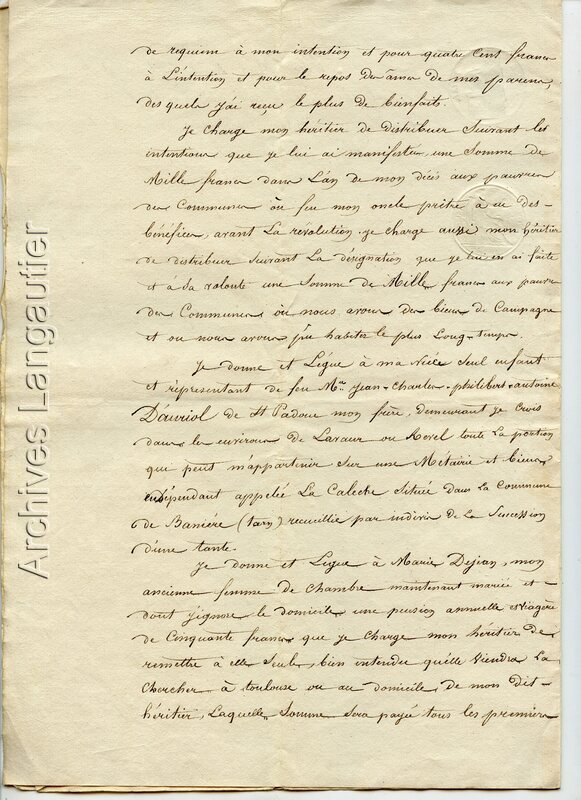 de requiem à mon intention et pour quatre cent francs
à L'intention et pour le repos des âmes de mes parens,
des quels j'ai reçu le plus de bienfaits.
Je Charge mon héritier de distribuer Suivant les
intentions que je lui ai manifestées, une Somme de
Mille francs dans L'an de mon décès aux pauvres
des Communes où feu mon oncle prêtre à eu des
bénéfices, avant La révolution. je charge aussi mon héritier
de distribuer Suivant La désignation que je lui en ai faite
et à sa volonté une Somme de Mille francs aux pauvres
des Communes où nous avons des biens de Campagne
et ou nous avons plus habités le plus Long-temps.
Je donne et Lègue à ma Nièce Seul enfant
et réprésentant de feu Mr. jean-Charles-philibert-antoine
D'auriol de St Padoue mon frère, demeurant je Crois
dans les environs de Lavaur ou Revel toute La portion
qui peut m'appartenir Sur une Métairie et biens
en dépendant appelée La Calecte Située dans La Commune
de Banière (tarn) recueillie par indivis de La Succession
d'une tante.
Je donne et Lègue à Marie Dejean, mon
ancienne femme de Chambre maintenant mariée et
dont j'ignore le domicile une pension annuelle et viagère
de Cinquante francs que je Charge mon héritier de
remettre à elle Seule, bien intendu qu'elle Viendra La
Chercher à toulouse ou au domicile de mon dit
héritier, Laquelle Somme Sera payée tous les premiers
Archives Langautier